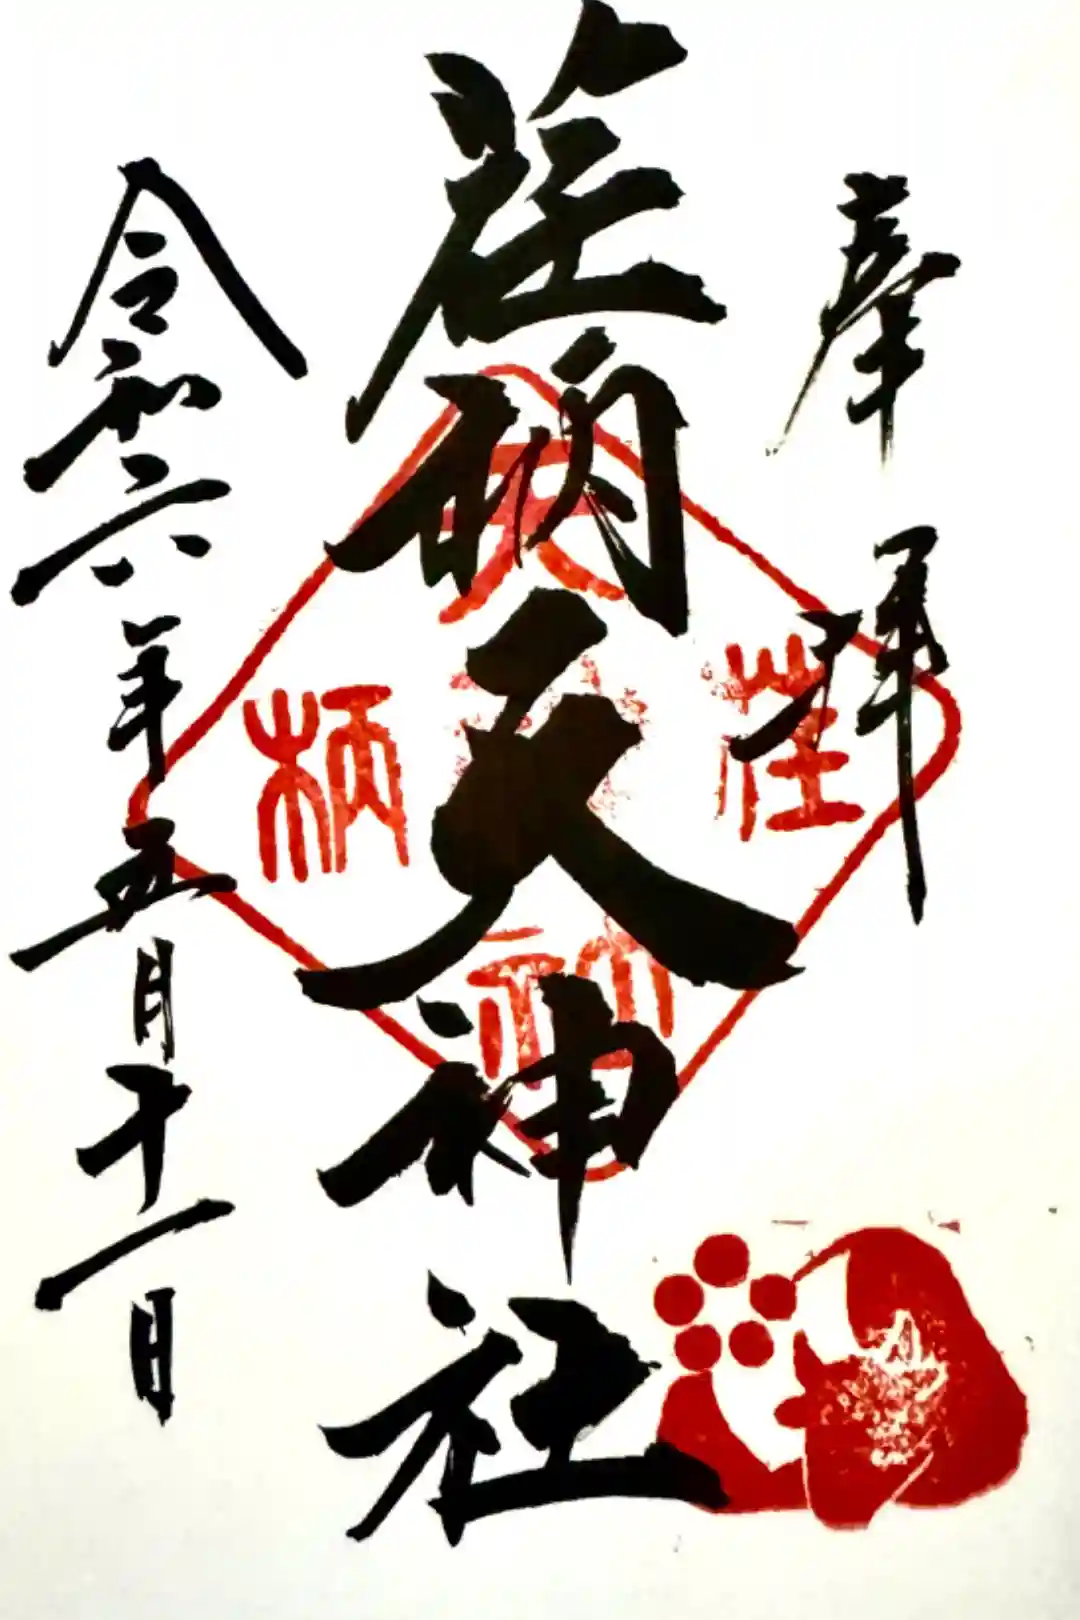 奉拝
荏柄天神社
令和六年五月十一日
天
荏
柄